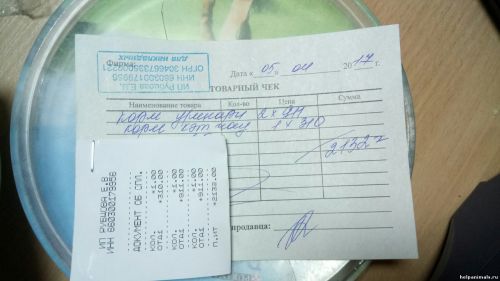 ИП Рубцова Е.В.
ИНН 660300179956
для накладных
Фирма:
Дата « 05 » 04 2017 г.
ТОВАРНЫЙ ЧЕК
Наименование товара Кол-во Цена Сумма
корм уринари 2 х 911
корм кэт чау 1 х 310
2132=
продавца:
ИП РУБЦОВА Е.В.
ИНН 660300179956
ДОКУМЕНТ ОБ ОПЛ.
КОЛ. *1.00
ОТД1 *310.00
КОЛ. *1.00
ОТД1 *911.00
КОЛ. *1.00
ОТД1 *911.00
П.ИТ *2132.00
helpanimals.ru